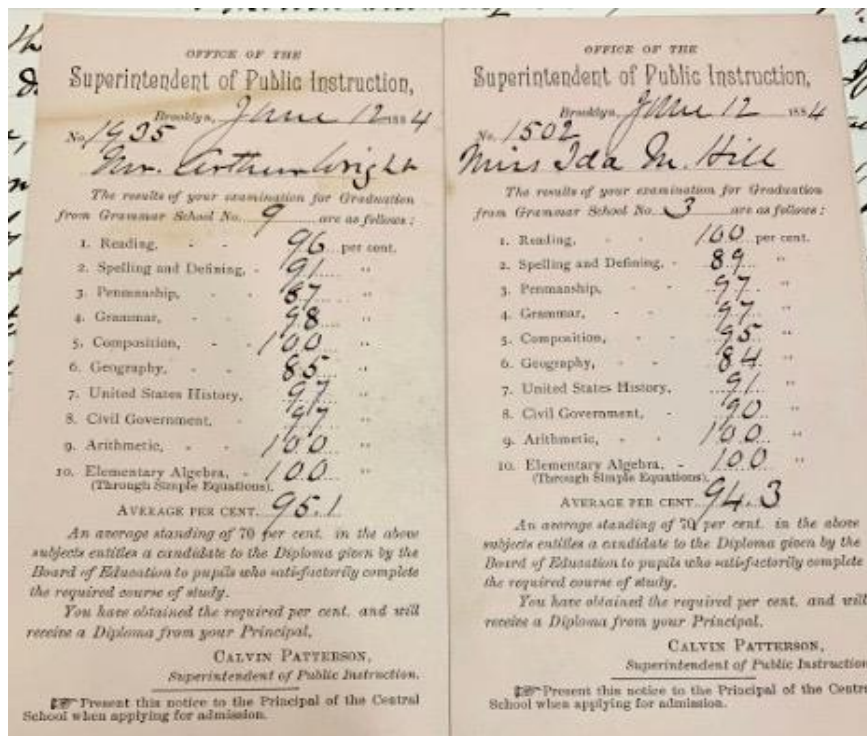 OFFICE OF THE
Superintendent of Public Instruction,
Brooklyn, June 12 1884
No. 1935
Mr. Arthur Wright
The results of your examination for Graduation
from Grammar School No. 9 are as follows:
1. Reading, - - 96 per cent.
2. Spelling and Defining, - 91 "
3. Penmanship, - - 87 "
4. Grammar, - - 98 "
5. Composition, - - 100 "
6. Geography, - - 85 "
7. United States History, 97 "
8. Civil Government, - 97 "
9. Arithmetic, - - 100 "
10. Elementary Algebra, - 100 "
(Through Simple Equations).
AVERAGE PER CENT. 95.1
An average standing of 70 per cent. in the above
subjects entitles a candidate to the Diploma given by the
Board of Education to pupils who satisfactorily complete
the required course of study.
You have obtained the required per cent. and will
receive a Diploma from your Principal.
CALVIN PATTERSON,
Superintendent of Public Instruction.
☞ Present this notice to the Principal of the Central
School when applying for admission.
OFFICE OF THE
Superintendent of Public Instruction,
Brooklyn, June 12 1884
No. 1502
Miss Ida M. Hill
The results of your examination for Graduation
from Grammar School No. 3 are as follows:
1. Reading, - - 100 per cent.
2. Spelling and Defining, - 89 "
3. Penmanship, - - 97 "
4. Grammar, - - 97 "
5. Composition, - - 95 "
6. Geography, - - 84 "
7. United States History, 91 "
8. Civil Government, - 90 "
9. Arithmetic, - - 100 "
10. Elementary Algebra, - 100 "
(Through Simple Equations).
AVERAGE PER CENT. 94.3
An average standing of 70 per cent. in the above
subjects entitles a candidate to the Diploma given by the
Board of Education to pupils who satisfactorily complete
the required course of study.
You have obtained the required per cent. and will
receive a Diploma from your Principal.
CALVIN PATTERSON,
Superintendent of Public Instruction
☞ Present this notice to the Principal of the Centr
School when applying for admission.